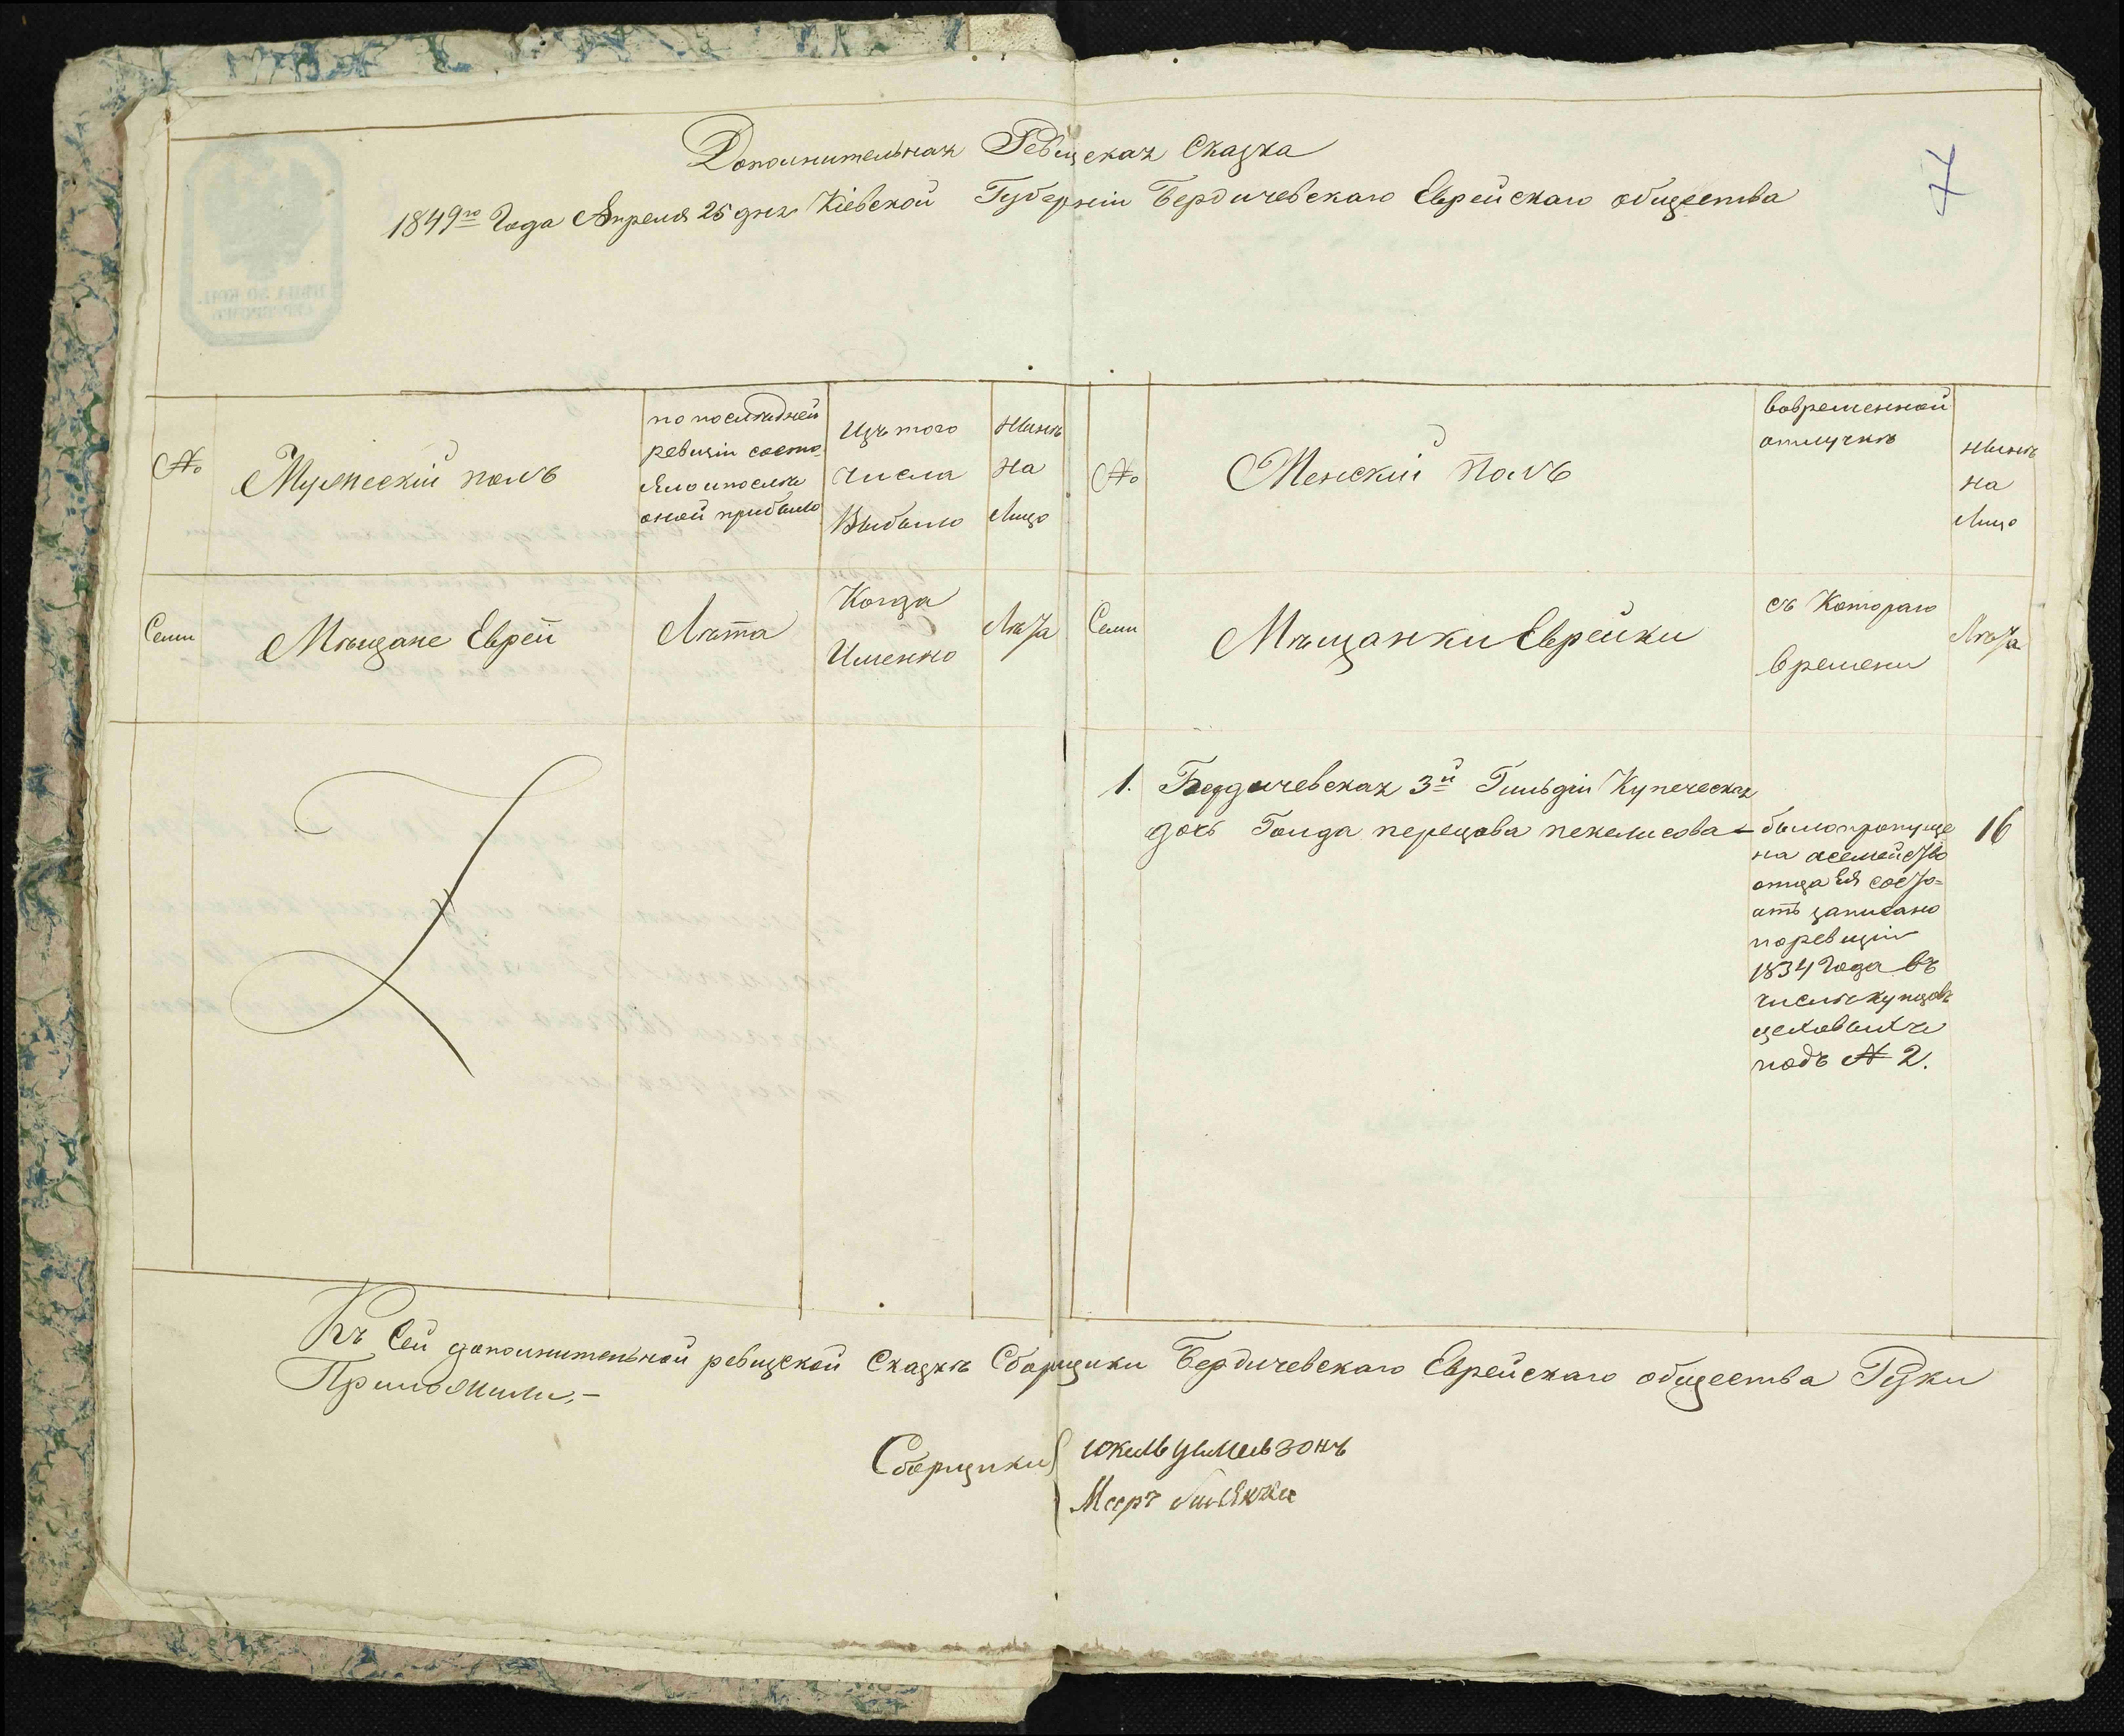 Дополнительная Ревизская Сказка
7
1849го Года Апреля 25 дня Кіевской Губерніи Бердичевскаго Еврейскаго общества
№
Мужескій полъ
по последней
ревизіи состо-
яло и после
оной прибыло
Изъ того
числа
Выбыло
Нынѣ
на
Лицо
№
Женскій Полъ
вовременной
отлучкѣ
Нынѣ
на
Лицо
Семи
Мѣщане Евреи
Лѣта
Когда
Именно
Лѣта
Семи
Мѣщанки Еврейки
съ Котораго
времени
Лѣта
1. Бердичевская 3й Гильдіи Купеческая
дочь Голда перецова пекелисова – было пропуще 16
на а семейство
отца Ея состо-
итъ записано
по ревизіи
1834 Года въ
числѣ купцовъ
цеховыхъ
подъ № 2.
Къ Сей дополнительной ревизской Сказкѣ Сборщики Бердичевскаго Еврейскаго общества Руки
Приложили,-
Сборщики
Мееръ